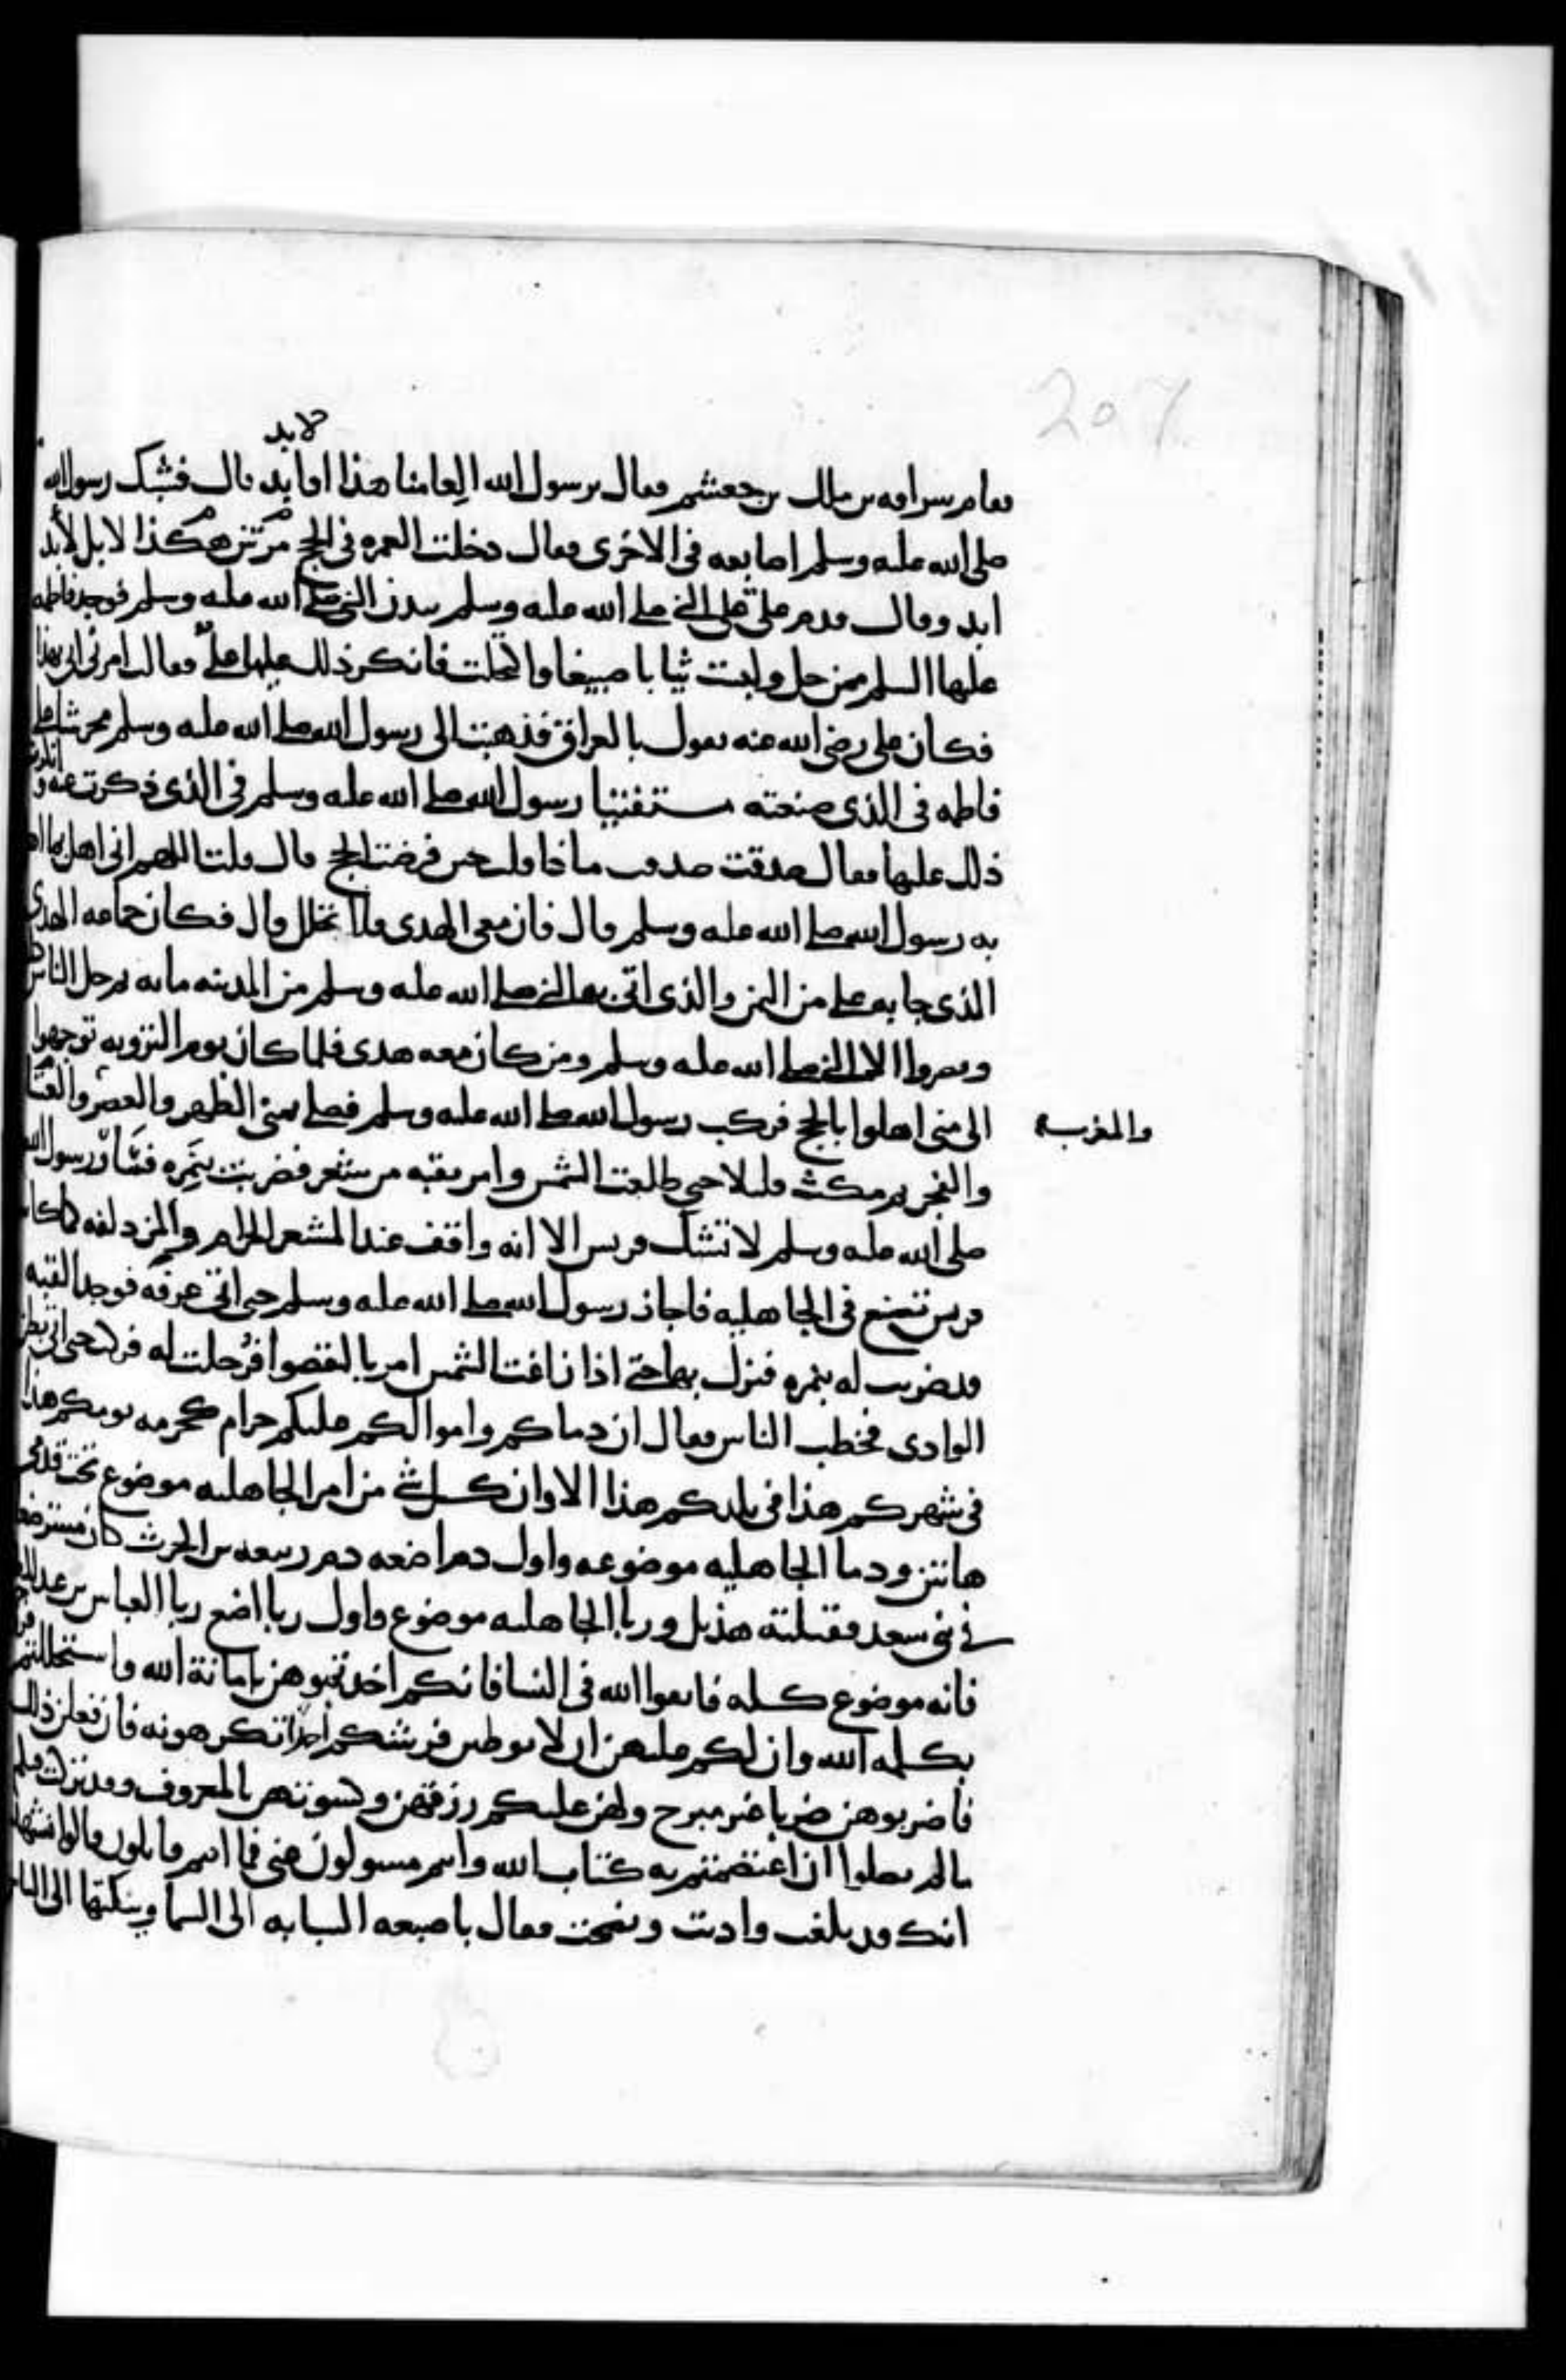 207
لابد
فقام سراقه بن ملك بن جعشم فقال يرسول الله العامنا هذا او ابد قال فشبك رسول الله
صلى الله عليه وسلم اصابعه فى الاخرى فقال دخلت العمره فى الحج مرتين هكذا لا بل لأبد
ابد وقال قدم على على النبي صلى الله عليه وسلم ببدن النبي صلى الله عليه وسلم فوجد فاطمه
عليها السلم ممن حل ولبست ثيابا صبيغا واكتحلت فانكر ذلك عليها على فقالت امرنى ابى بهذا
فكان على رضى الله عنه يقول بالعراق فذهبت الى رسول الله صلى الله عليه وسلم محرشا على
فاطمه فى الذى صنعته مستفتيا رسول الله صلى الله عليه وسلم فى الذى ذكرت عنه و انكرت
ذلك عليها فقال صدقت صدقت ماذا قلت حين فرضت الحج قال قلت اللهم انى اهل بما اهل
به رسول الله صلى الله عليه وسلم قال فان معى الهدى فلا تحلل قال فكان جماعه الهدى
الذى جا به على من اليمن والذى اتى به النبي صلى الله عليه وسلم من المدينه مايه ثم حل الناس
وقصروا الا النبي صلى الله عليه وسلم ومن كان معه هدى فلما كان يوم الترويه توجهوا
الى منى اهلوا بالحج فركب رسول الله صلى الله عليه وسلم فصلى بمنى الظهر والعصر والعشا
والمغرب
والفجر ثم مكث قليلا حتى طلعت الشمس وامر بقبه من شعر فضربت بنمره فسار رسول الله
صلى الله عليه وسلم لا تشك قريش الا انه واقف عند المشعر الحرام والمزدلفه كما كانت
قريش تصنع فى الجاهليه فاجاز رسول الله صلى الله عليه وسلم حتى اتى عرفه فوجد القبه
قد ضربت له بنمره فنزل بها حتى اذا زاغت الشمس امر بالقصوا فرحلت له فركب حتى اتى بطن
الوادى فخطب الناس فقال ان دماكم واموالكم عليكم حرام كحرمه يومكم هذا
فى شهركم هذا فى بلدكم هذا الا وان كل شى من امر الجاهليه موضوع تحت قدمى
هاتين ودما الجاهليه موضوعه واول دم اضعه دم ربيعه بن الحرث كان مسترضعا
فى بنى سعد فقتلته هذيل وربا الجاهليه موضوع واول ربا اضع ربا العباس بن عبد المطلب
فانه موضوع كله فاتقوا الله فى النسا فانكم اخذتموهن بامانة الله واستحللتم
بكلمه الله وان لكم عليهن ان لا يوطين فرشكم احدا تكرهونه فان فعلن ذلك
فاضربوهن ضربا غير مبرح ولهن عليكم رزقهن وكسوتهن بالمعروف وقد تركت فيكم
مالم تضلوا ان اعتصمتم به كتاب الله وانتم مسولون عنى فما انتم قايلون قالوا نشهد
انك قد بلغت واديت ونصحت فقال باصبعه السبابه الى السما وينكتها الى الناس